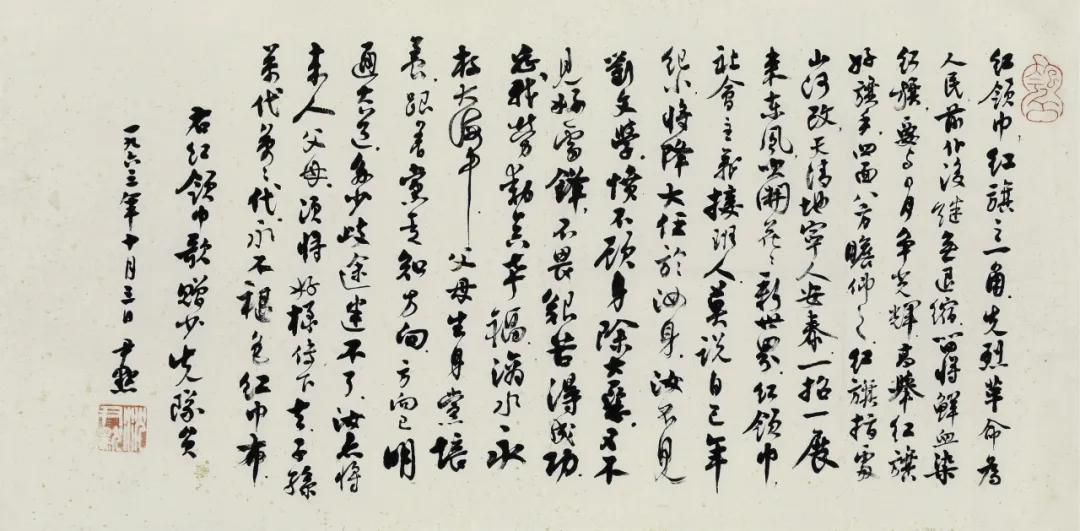 红领巾，红旗之一角，先烈革命为
人民，前仆后继无退缩，留将鲜血染
红旗，要与日月争光辉，高举红旗
好旗手，四面八方瞻仰之，红旗指处
山河改，天清地宁人安泰，一招一展
来东风，吹开花花新世界，红领巾
社會主義接班人，莫说自己年
纪小，将降大任於汝身，汝不見
劉文學，愤不顾身除大惡，又不
見好雷鋒，不畏艱苦得成功
忘我勞動无幸福，滴水永
在大海中，父母生身党培
養，跟着党走知方向，方向已明
通大道，多少歧途迷不了，汝亦将
来人父母，须将好樣传下去，子孫
萬代万万代，永不褪色红巾布
右红领巾歌赠少先隊员
一九六三年十月三日 尹默